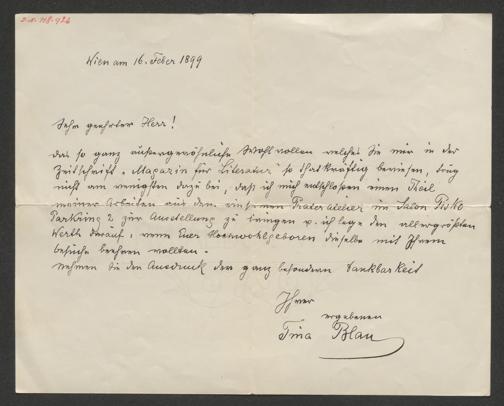 Wien am 16. Feber 1899
Sehr geehrter Herr!
das so ganz außergewöhnliche Wohlwollen welches Sie mir in der
Zeitschrift „Magazin für Literatur" so thatkräftig bewiesen, trug
nicht am wenigsten dazu bei, daß ich mich entschloßen einen Theil
meiner Arbeiten aus dem Prateratelier im Salon Pisko
Parkring 2 zur Ausstellung zu bringen u. ich lege den allergrößten
Werth darauf, wenn Euer Hochwohlgeboren dieselbe mit Ihrem
besuche beehren wollten.
Nehmen Sie den Ausdruck der ganz besondern Dankbarkeit
Ihrer
ergebenen
Tina Blau